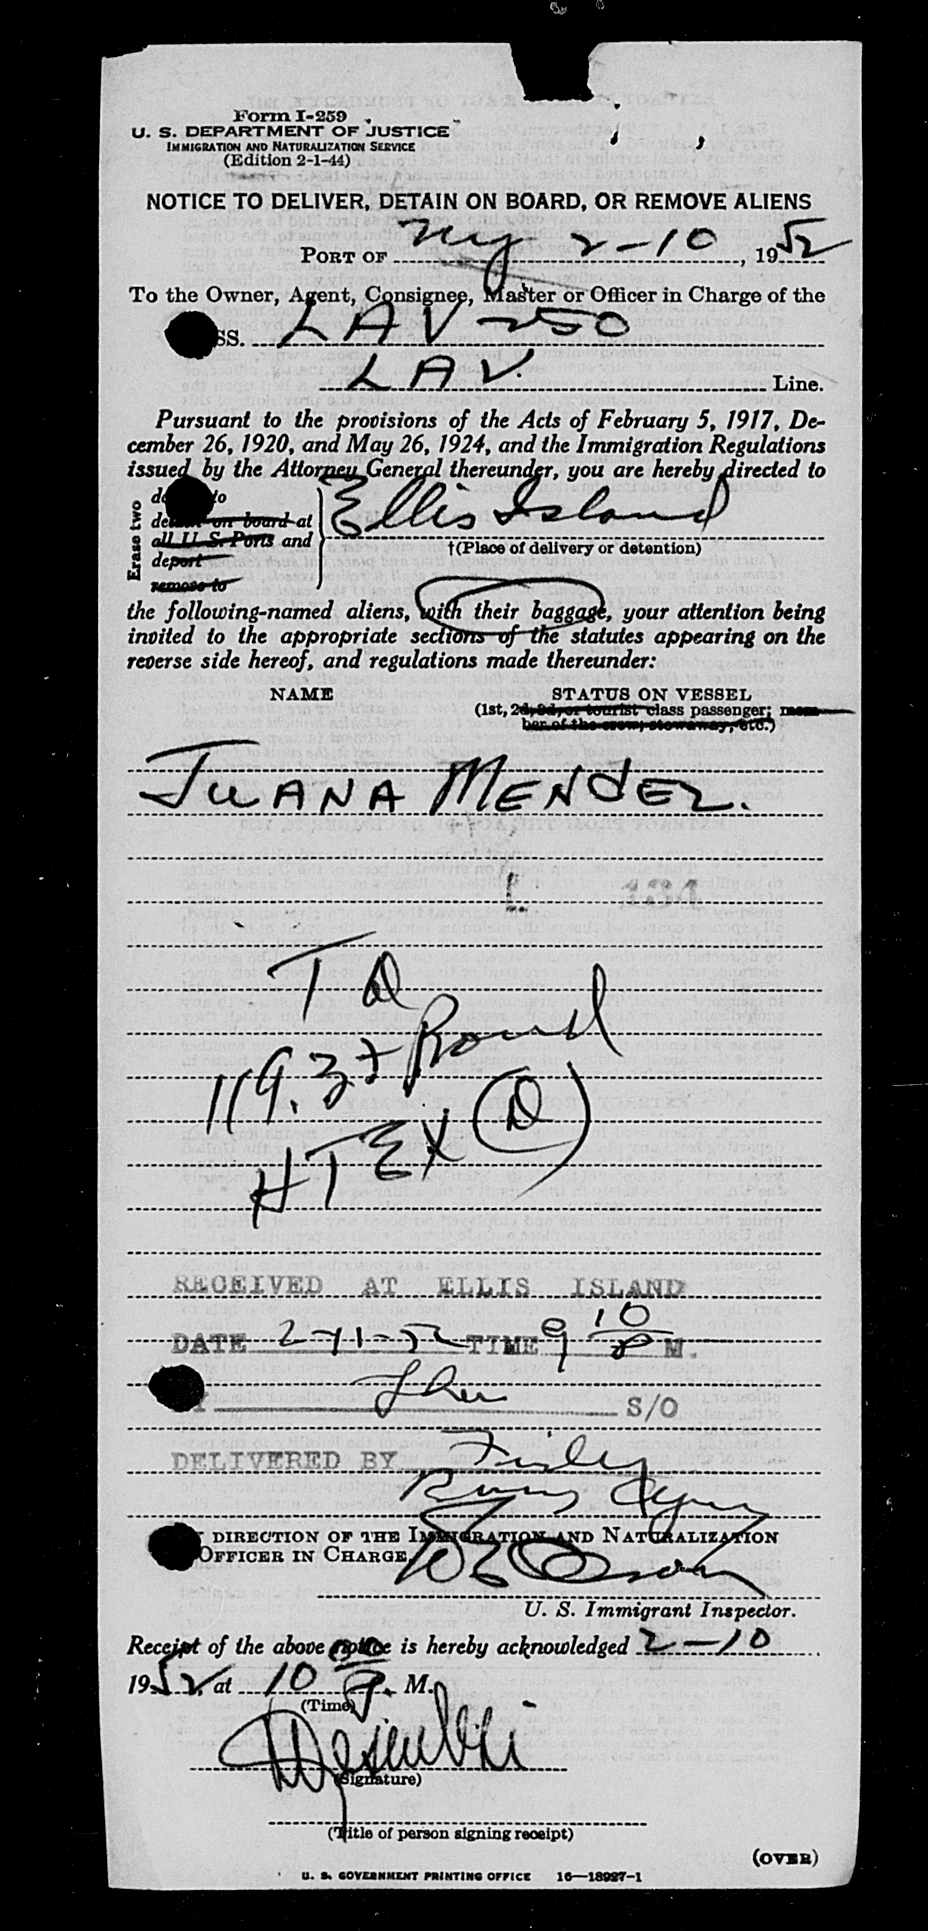 Form I-259
U. S. DEPARTMENT OF JUSTICE
IMMIGRATION AND NATURALIZATION SERVICE
(Edition 2-1-44)
NOTICE TO DELIVER, DETAIN ON BOARD, OR REMOVE ALIENS
PORT OF NY 2-10, 1952
To the Owner, Agent, Consignee, Master or Officer in Charge of the
SS. LAV-250
LAV. Line.
Pursuant to the provisions of the Acts of February 5, 1917, De-
cember 26, 1920, and May 26, 1924, and the Immigration Regulations
issued by the Attorney General thereunder, you are hereby directed to
Erase two
to
detain on board at
all U. S. Ports and
deport
remove to
Ellis Island
†(Place of delivery or detention)
the following-named aliens, with their baggage, your attention being
invited to the appropriate sections of the statutes appearing on the
reverse side hereof, and regulations made thereunder:
NAME STATUS ON VESSEL
(1st, 2d, 3d, or tourist class passenger; mem-
ber of the crew; stowaway, etc.)
JUANA MENDEZ.
L 134
T D
119.3+ Round
HTEX (D)
RECEIVED AT ELLIS ISLAND
DATE 2-11-52 TIME 9 10 P M.
S/O
DELIVERED BY
DIRECTION OF THE IMMIGRATION AND NATURALIZATION
OFFICER IN CHARGE
U. S. Immigrant Inspector.
Receipt of the above notice is hereby acknowledged 2-10
1952, at 10 M.
(Time)
(Signature)
(Title of person signing receipt)
(OVER)
U. S. GOVERNMENT PRINTING OFFICE 16—18997-1